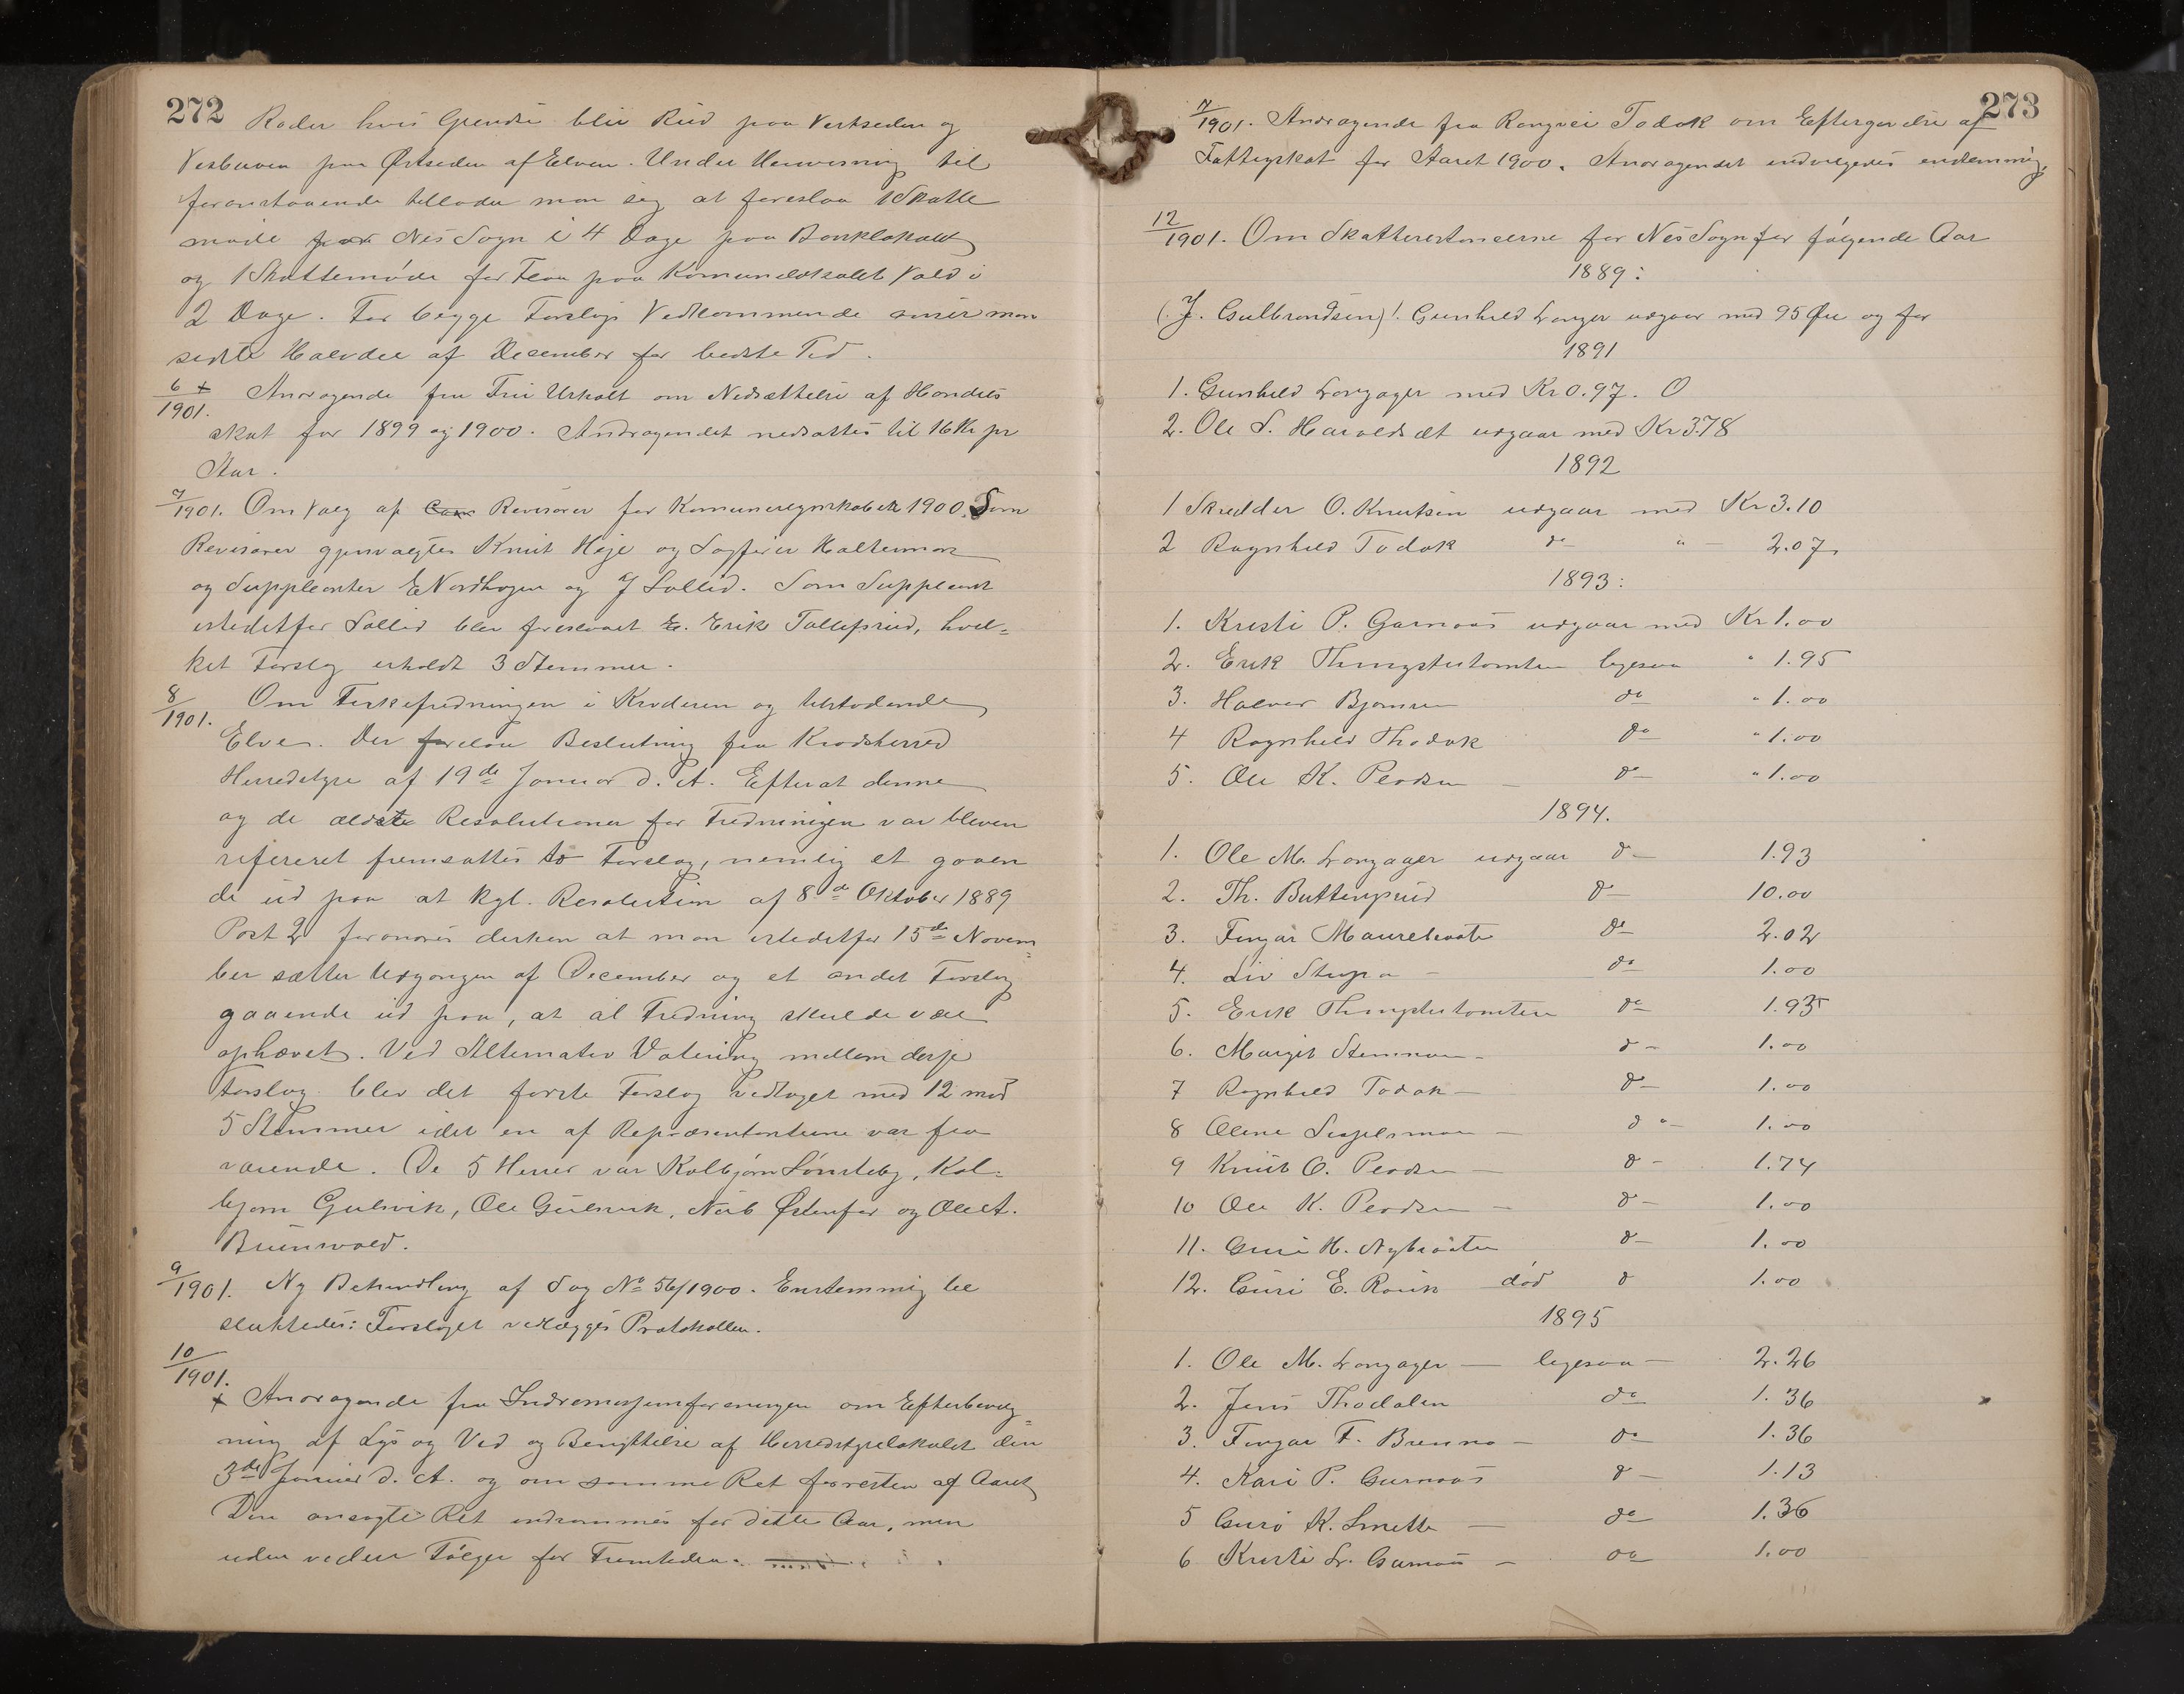 272
Roder hvis Grendse blir Rud paa Vestsiden og
paa Østsiden af Elven. Under Henvisning til
foranstaaende tillader man sig at foreslaa 1 Skatte
møde for Nes Sogn i 4 Dage paa Banklokalet
og 1 Skattemøde for Flaa paa Komunelokalet Vold i
2 Dage. For begge Forslags Vedkommende anser man
sidste Halvdel af December for bedste Tid.
6/1901. + Andragende fra Fru Urholt om Nedsættelse af Handels
skat for 1899 og 1900. Andragendet nedsattes til 16 Kr pr
Aar.
7/1901. Om Valg af Revisorer for Komuneregnskabet 1900. Som
Revisorer gjenvalgtes Knut Hoje og Sagfører Halteman
og Suppleanter E Nordhagen og J Sollid. Som Suppleant
istedetfor Sollid blev foreslaaet E. Erik Tollefsrud, hvil=
ket Forslag erholdt 3 Stemmer.
8/1901. Om Fiskefredningen i Krøderen og tilstødende
Elve. Der forelaa Beslutning fra Krødsherred
Herredstyre af 19de Januar d. A. Efterat denne
og de ældste Resolutioner for Fredningen var bleven
refereret fremsattes to Forslag, nemlig et gaaen
de ud paa at kgl. Resolution af 8de Oktober 1889
Post 2 forandres derhen at man istedetfor 15de Novem=
ber sætter Udgangen af December og et andet Forslag
gaaende ud paa, at al Fredning skulde være
ophævet. Ved Alternativ Votering mellem disse
Forslag blev det første Forslag vedtaget med 12 mod
5 Stemmer idet en af Repræsentanterne var fra
værende. De 5 Herrer var Kolbjørn Lønsteby, Kol=
bjørn Gulsvik, Ole Gulsvik, Nub Østenfor og Ole A.
Bruenvold.
9/1901. Ny Behandling af Sag No 56/1900. Enstemmig be
sluttedes: Forslaget vedlægges Protokollen.
10/1901.
+ Andragende fra Indremissjonsforeningen om Efterbevilg=
ning af Lys og Ved og Benyttelse af Herredstyrelokalet den
3de Januar d. A. og om samme Ret for resten af Aaret
Den ansøgte Ret indrømmes for dette Aar, men
uden videre Følger for Fremtiden.
273
7/1901. Andragende fra Rangvei Todok om Eftergivelse af
Fattigskat for Aaret 1900. Andragendet indvilgedes enstemmig.
12/1901. Om Skatterestancerne for Nes Sogn for følgende Aar
1889:
(J. Gulbrandsen) 1. Gunhild Langer udgaar med 95 Øre og for
1891
1. Gunhild Langager med Kr 0.97. O
2. Ole S. Haroldsæt udgaar med Kr 3.78
1892
1 Skredder O. Knutsen udgaar med Kr 3.10
2 Ragnhild Todok do " — 2.07
1893:
1. Kristi P. Garnaas udgaar med Kr 1.00
2. Erik Thingstutomten ligesaa " 1.95
3. Halvor Bjørnsen do " 1.00
4 Ragnhild Thodok do " 1.00
5. Ole K. Perdsen — do " 1.00
1894.
1. Ole M. Langager udgaar do 1.93
2. Th. Buttingsrud do 10.00
3. Fingar do 2.02
4. Liv Stup do 1.00
5. Erik Thingstutomten do 1.95
6. Margit Stemman — do 1.00
7 Ragnhild Todok — do 1.00
8 Olene — do 1.00
9 Knut O. Perdsen — do 1.74
10 Ole K. Perdsen — do 1.00
11. Guri H. Nybraaten do 1.00
12. Guri E. Rouk død do 1.00
1895
1. Ole M. Langager — ligesaa — 2.26
2. Jens Thodalen do 1.36
3. Fingar F. Brenna — do 1.36
4. Kari P. Garnaas do 1.13
5 Guro K. Smette — do 1.36
6 Kristi L. Garnaas — do 1.00